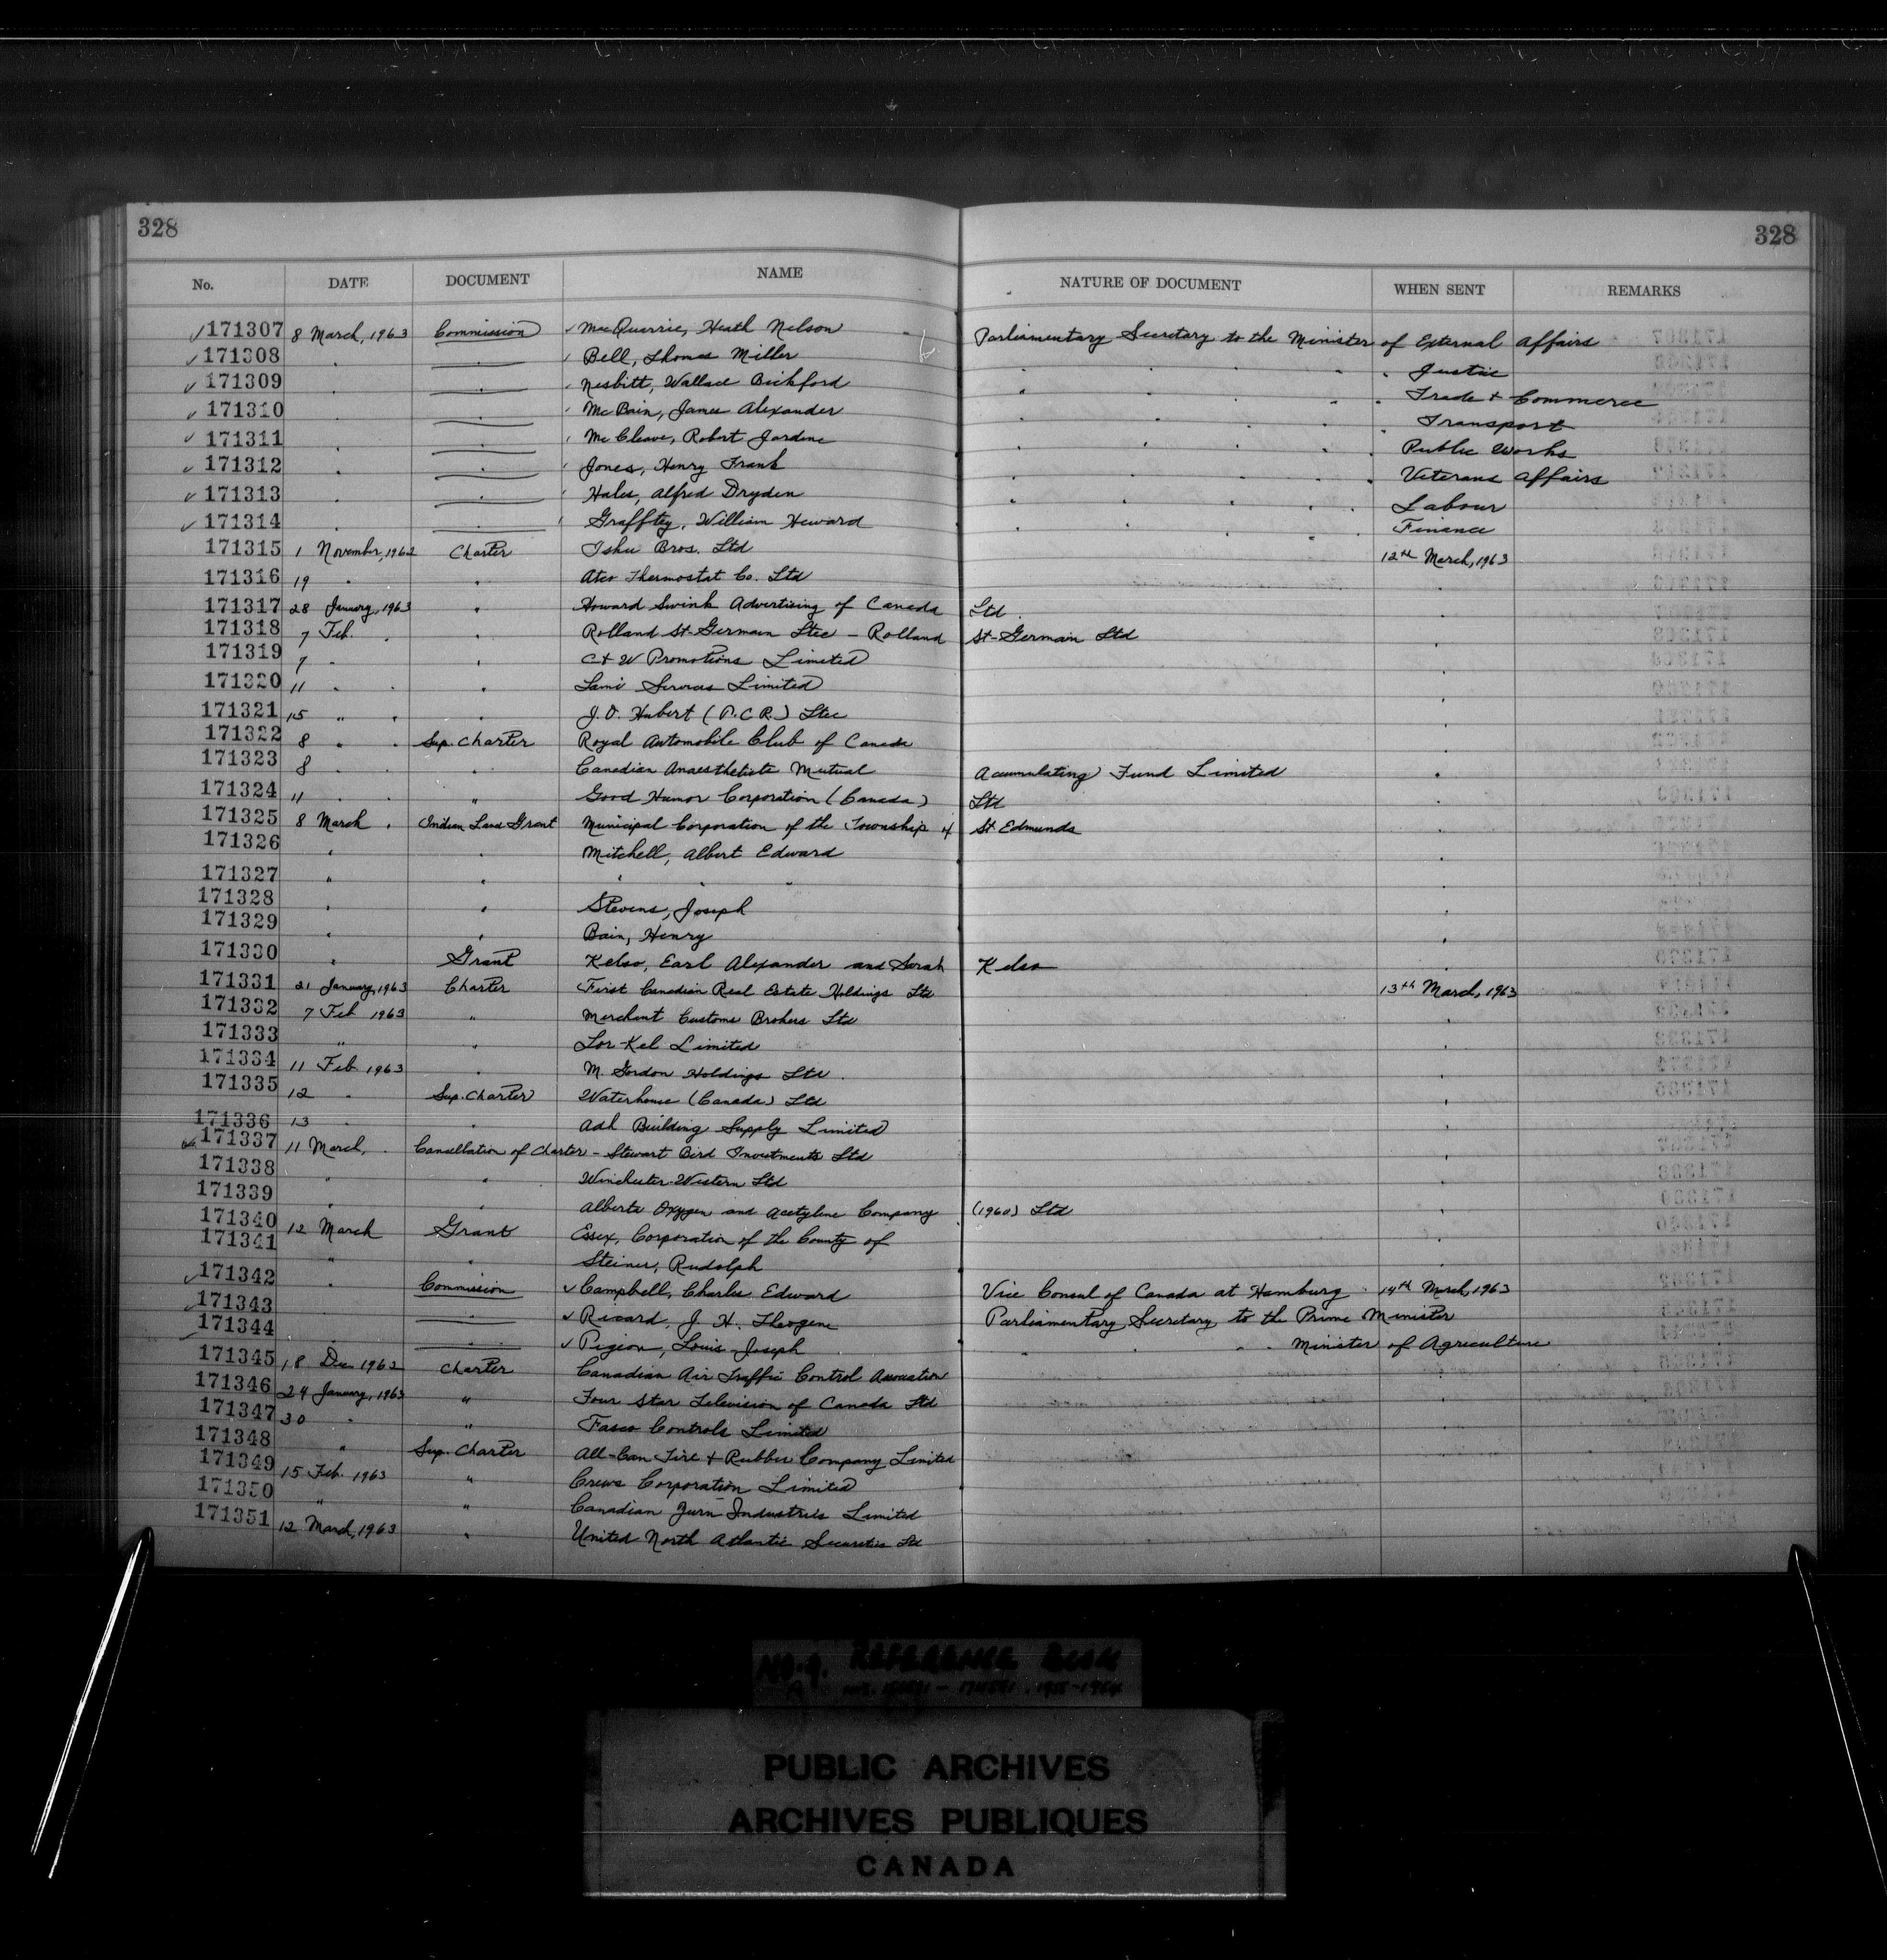 328 328
No. DATE DOCUMENT NAME NATURE OF DOCUMENT WHEN SENT REMARKS
171307 8 March, 1963 Commission MacQuarrie, Heath Nelson Parliamentary Secretary to the Minister of External Affairs
171308 " " Bell, Thomas Miller " " " " Justice
171309 " " Nesbitt, Wallace Bickford " " " " Trade & Commerce
171310 " " McBain, James Alexander " " " " Transport
171311 " " McCleave, Robert Jardine " " " " Public Works
171312 " " Jones, Henry Frank " " " " Veterans Affairs
171313 " " Hales, Alfred Dryden " " " " Labour
171314 " " Grafftey, William Heward " " " " Finance
171315 1 November, 1962 Charter Bros. Ltd 12th March, 1963
171316 19 " " Atco Thermostat Co. Ltd "
171317 28 January, 1963 " Howard Swink Advertising of Canada Ltd. "
171318 7 Feb. " " Rolland St-Germain Ltee - Rolland St-Germain Ltd "
171319 7 " " C & W Promotions Limited "
171320 11 " " " Lami Services Limited "
171321 15 " " " J.O. Hubert (P.C.R.) Ltee "
171322 8 " " Sup. Charter Royal Automobile Club of Canada "
171323 8 " " Canadian Anaesthetists Mutual Accumulating Fund Limited "
171324 11 " " " Good Humor Corporation (Canada) Ltd "
171325 8 March " Indian Land Grant Municipal Corporation of the Township of St Edmunds "
171326 " " Mitchell, Albert Edward "
171327 " " " " " "
171328 " " Stevens, Joseph "
171329 " " Bain, Henry "
171330 " Grant Kelso, Earl Alexander and Sarah Kelso "
171331 21 January, 1963 Charter First Canadian Real Estate Holdings Ltd 13th March, 1963
171332 7 Feb 1963 " Merchant Customs Brokers Ltd "
171333 " " Lor-Kel Limited "
171334 11 Feb. 1963 " M. Gordon Holdings Ltd. "
171335 12 " Sup. Charter Waterhouse (Canada) Ltd "
171336 13 " " Adh Building Supply Limited "
171337 11 March, " Cancellation of Charter - Stewart Bird Investments Ltd "
171338 " " Winchester-Western Ltd "
171339 " " Alberta Oxygen and Acetylene Company (1960) Ltd "
171340 12 March Grant Essex, Corporation of the County of "
171341 " " Steiner, Rudolph "
171342 " Commission Campbell, Charles Edward Vice Consul of Canada at Hamburg 14th March, 1963
171343 " " Ricard, J. H. Theogene Parliamentary Secretary to the Prime Minister
171344 " " Pigeon, Louis-Joseph " " " Minister of Agriculture
171345 18 Dec 1962 Charter Canadian Air Traffic Control Association "
171346 24 January, 1963 " Four Star Television of Canada Ltd "
171347 30 " " Fasco Controls Limited "
171348 " Sup. Charter All-Can Tire & Rubber Company Limited "
171349 15 Feb. 1963 " Crews Corporation Limited "
171350 " " Canadian Zurn Industries Limited "
171351 12 March, 1963 " United North Atlantic Securities Ltd "
REFERENCE BOOK
PUBLIC ARCHIVES
ARCHIVES PUBLIQUES
CANADA